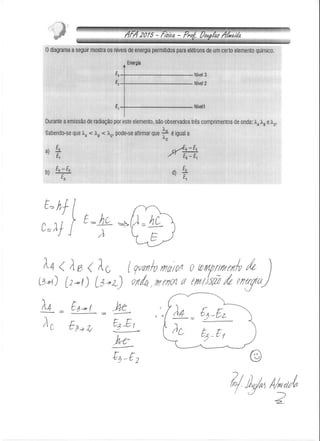 AFA 2015 - Física - Prof. Douglas Almeida
O diagrama a seguir mostra os níveis de energia permitidos para elétrons de um certo elemento químico.
Energia
E₃ Nível 3
E₂ Nível 2
E₁ Nível 1
Durante a emissão de radiação por este elemento, são observados três comprimentos de onda: λA, λB e λC.
Sabendo-se que λA < λB < λC, pode-se afirmar que λA/λC é igual a
a) E₃/E₁
c) E₃ - E₂/E₃ - E₁
b) E₃ - E₂/E₃
d) E₂/E₁
E = hf
C = λf
E = hc/λ => λ = hc/E
λA < λB < λC (quanto maior o comprimento de
(3→1) (2→1) (3→2) onda, menor a emissão de energia)
λA/λC = E₃→₁/E₃→₂ = hc/E₃-E₁ / hc/E₃-E₂ ∴ λA/λC = E₃-E₂/E₃-E₁
Prof. Douglas Almeida